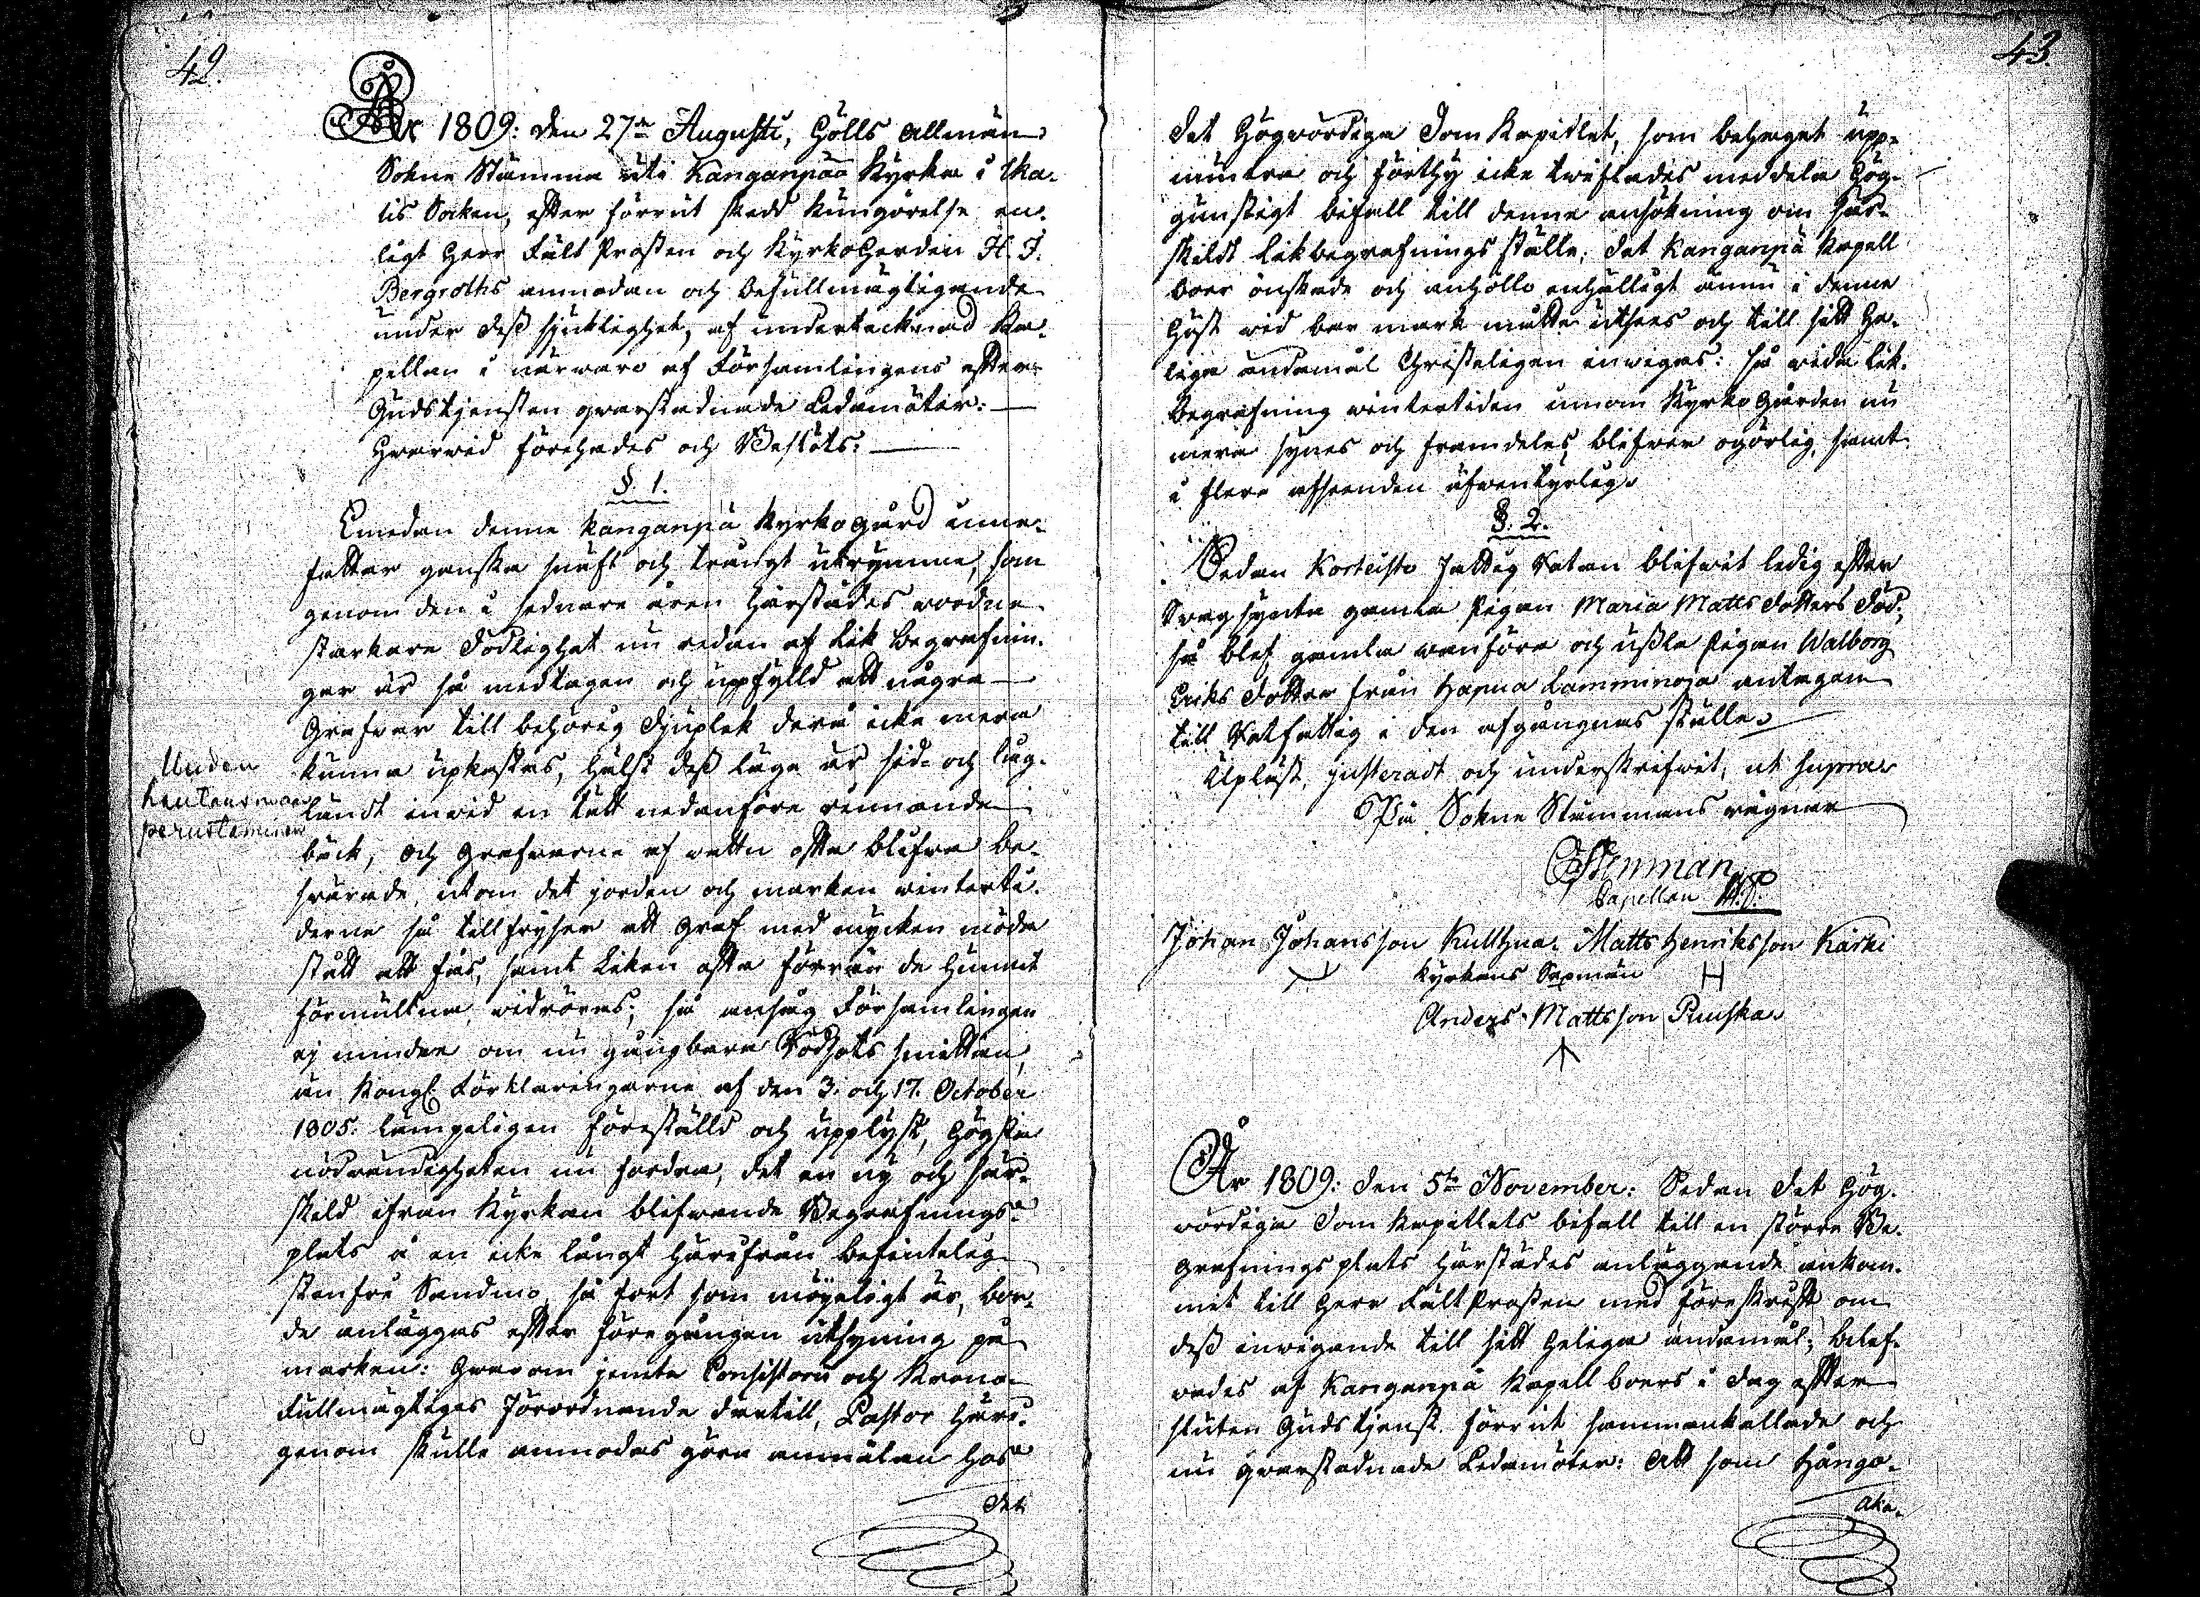 42.
År 1809: den 27de Augusti, Hölls Allmän
Sokne Stämma uti Kanganpää Kyrka i Ika-
lis Socken, efter förrut skedd kungörelse en-
ligt Herr Fält Prosten och Kyrkoherden H. J.
Bergroths anmodan och befullmägtigande
under dess sjuklighet, af undertecknad Ka-
pellan i närwaro af Församlingens efter
Gudstjensten qwarstadnade Ledamöter. —
Hwarwid förehades och Beslöts: —
§. 1.
Emedan denne Kanganpä Kyrkogård inne-
fattar ganska snäft och trångt utrymme, som
genom den i sednare åren härstädes wordne
starkare Dödlighet nu redan af Lik begrafnin-
gar är så medtagen och uppfylld att några
Grafwar till behörig djuplek derå icke mera
kunna upkastas, hälst dess läge är sid- och lug-
Uuden
hautausmaan
perustaminen
ländt inwid en tätt nedanföre rinnande
bäck, och Grafwarne af watten ofta blifwa be-
swärade, utom det jorden och marken winterti-
derne så tillfryser att Graf med mycken möda
stått att fås, samt Liken ofta förrän de hunnit
förmultna, widröras; så ansåg Församlingen
ej mindre om nu gångbara Rödsots smittan,
än Kongl. Förklaringarne af den 3. och 17. October
1805. lämpeligen föreställd och upplyst, Högsta
nödwändigheten nu fordra, det en ny och sär-
skild ifrån Kyrkan blifwande Begrafnings-
plats å en icke långt härifrån befintelig
stenfri Sandmo, så fort som möjeligt är, bor-
de anläggas efter föregången utsyning på
marken: Hwarom jemte Consistorii och Krono
Fullmägtiges förordnande dertill, Pastor häri-
genom skulle anmodas göra anmälan hos
det
43.
det Högwördiga Dom Kapitlet, som behaget upp-
muntra och förthy icke twiflades meddela Hög-
gunstigt bifall till denne ansökning om sär-
skildt Likbegrafnings ställe; det Kanganpä Kapell
boer önskade och anhöllo enhälligt ännu i denne
Höst wid bar mark måtte utses och till sitt he-
liga ändamål Christeligen inwigas: så wida Lik-
begrafning wintertiden innom Kyrkogården nu
mera synes och framdeles blifwer ogörlig, samt
i flere afseenden äfwentyrlig.
§. 2.
Sedan Korteisto Fattig Rotan blifwit ledig efter
Swagsynta gamla Pigan Maria Matts Dotters död,
så blef gamla wanföra och usla Pigan Walborg
Eriks Dotter från Hapua Lamminoja antagen
till Rotfattig i den afgångnas ställe.
Uplåst, justeradt och underskrifwit, ut supra
På Sokne Stämmans wägnar
CJStenman
Capellan
Johan Johansson Kulthna. Matts Henriksson Kärki
Kyrkans Sexmän H
Anders Mattsson Punska.
År 1809: den 5te November: Sedan det Hög-
wördiga Dom Kapitlets bifall till en större Be-
grafnings plats härstädes anläggande ankom-
mit till Herr Fält Prosten med föreskrift om
dess inwigande till sitt heliga ändamål; blef-
wades af Kanganpä Kapell boers i dag efter
sluten Gudstjenst förrut sammankallade och
nu qwarstadnade Ledamöter: Att som Hånga-